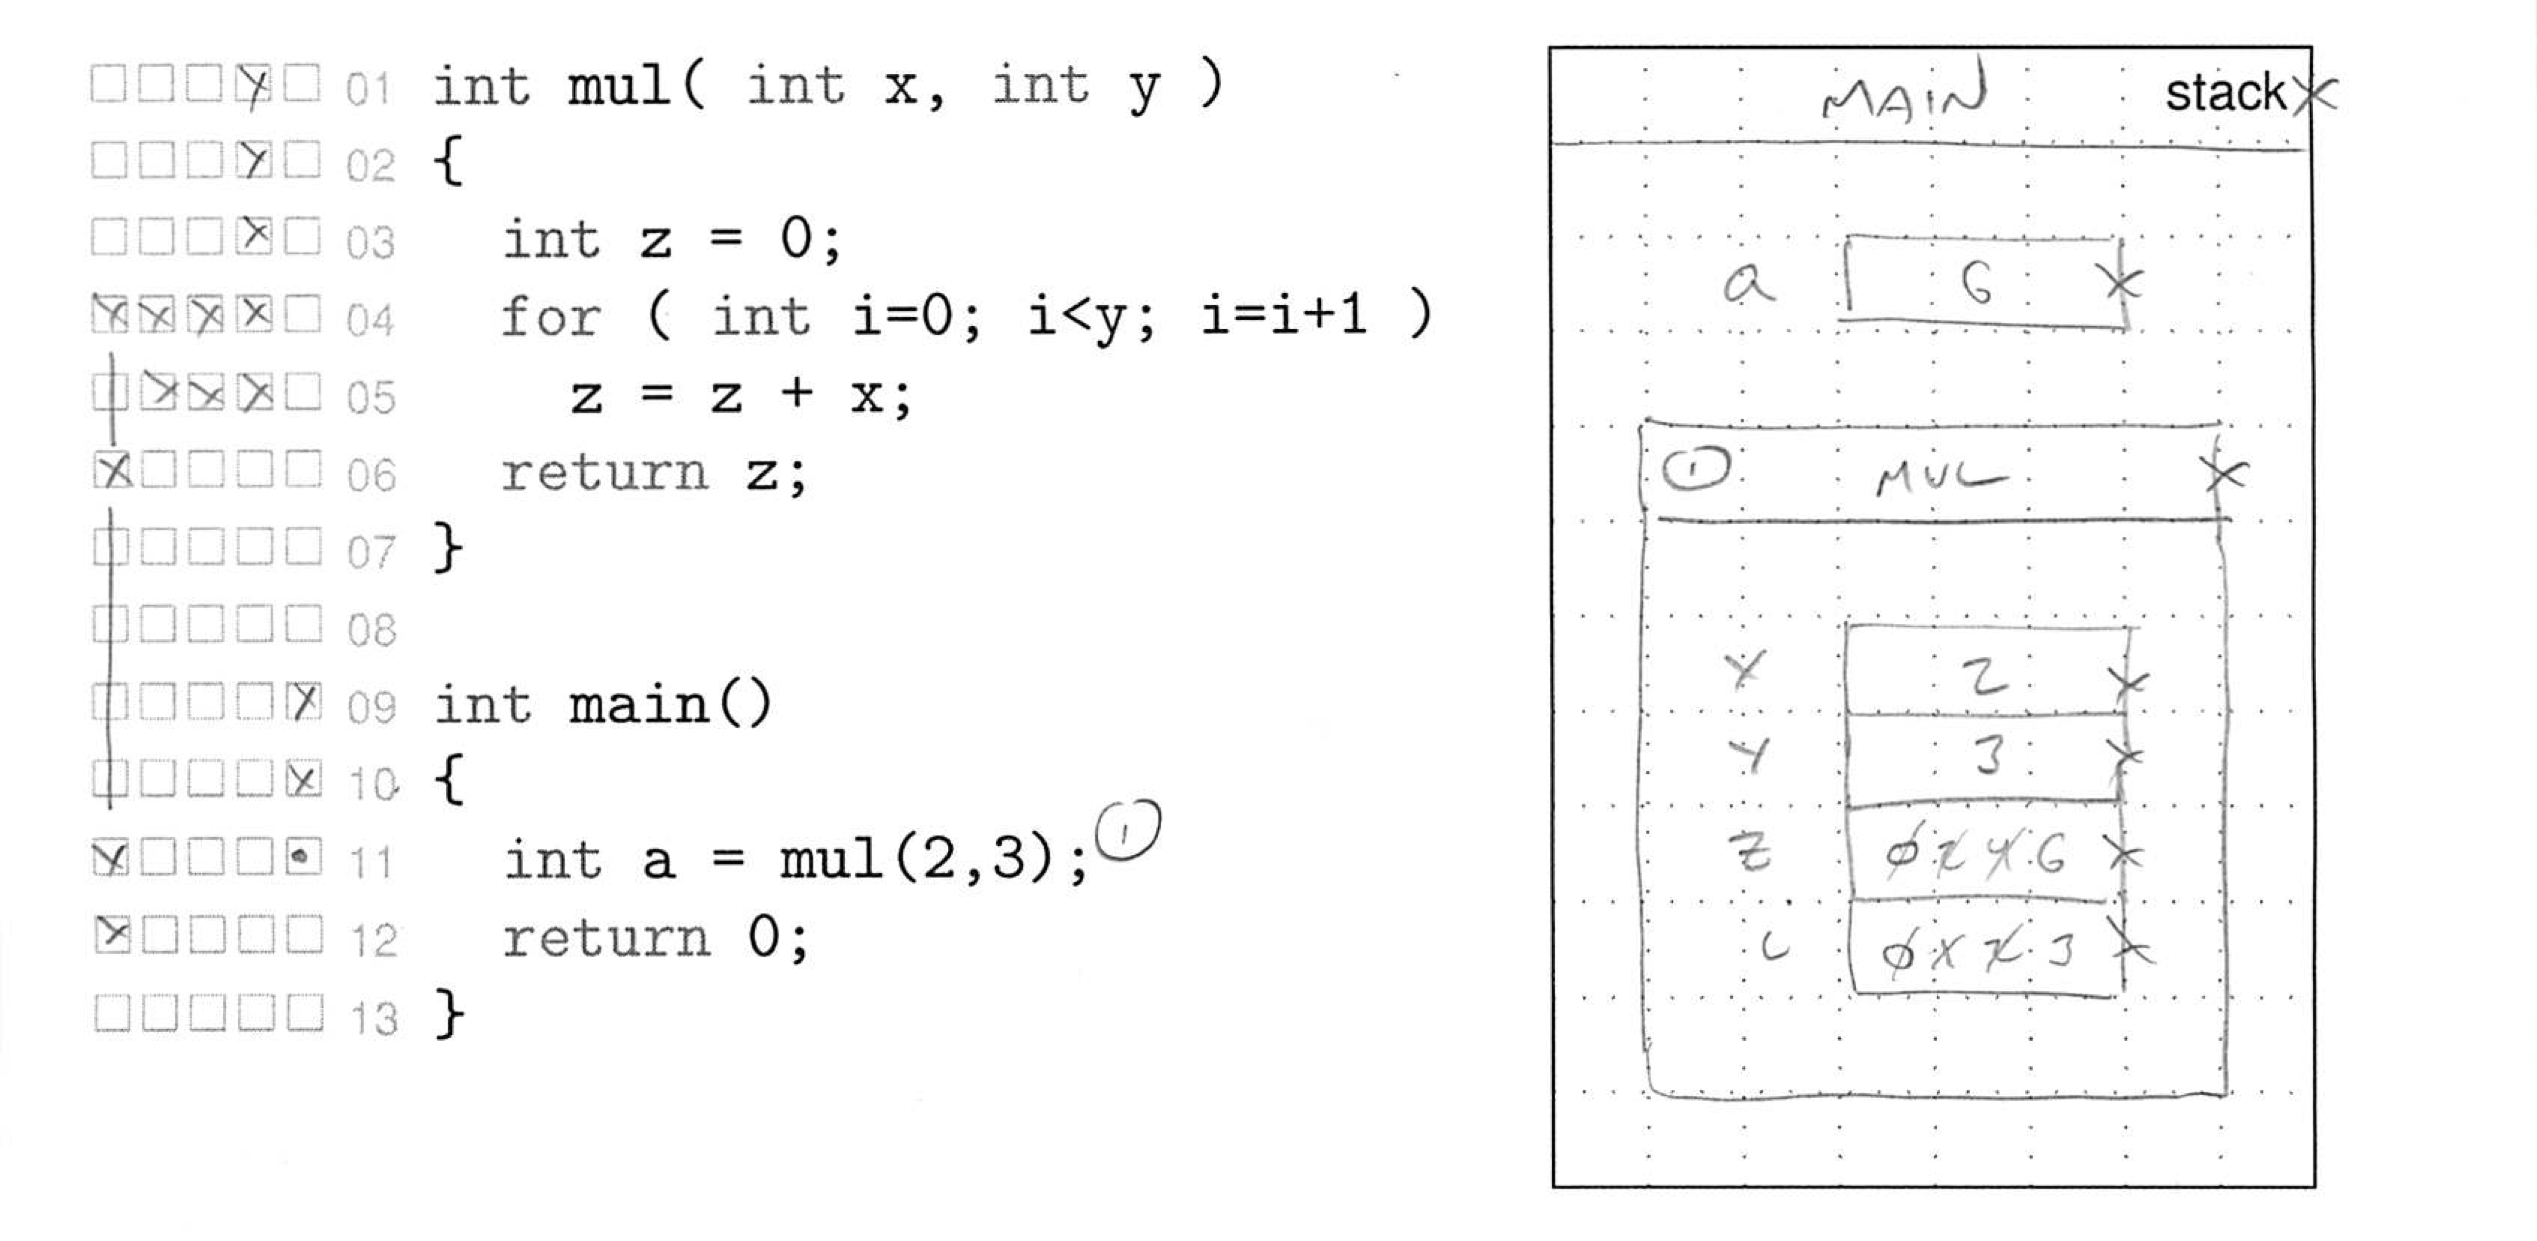 01 int mul( int x, int y )
02 {
03 int z = 0;
04 for ( int i=0; i<y; i=i+1 )
05 z = z + x;
06 return z;
07 }
08
09 int main()
10 {
11 int a = mul(2,3); ①
12 return 0;
13 }
MAIN stack
a 6
① MUL
x 2
y 3
z 0 2 4 6
i 0 1 2 3